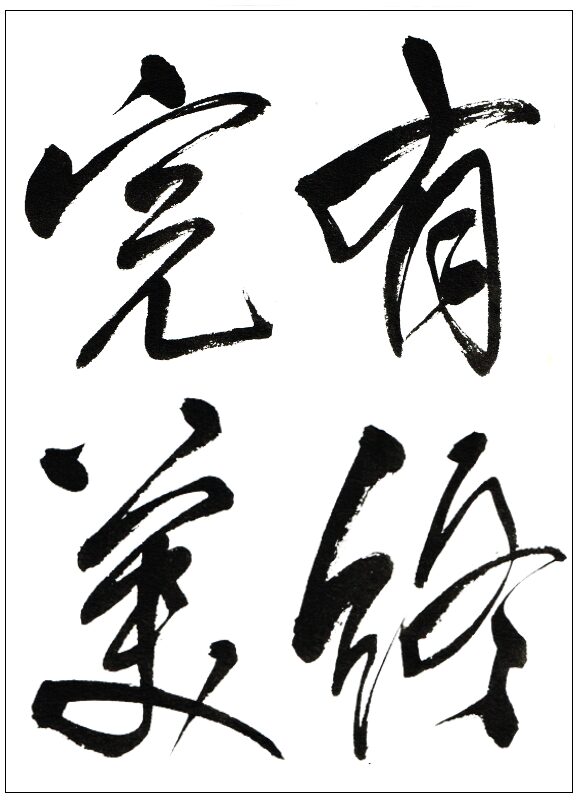 有終
完美